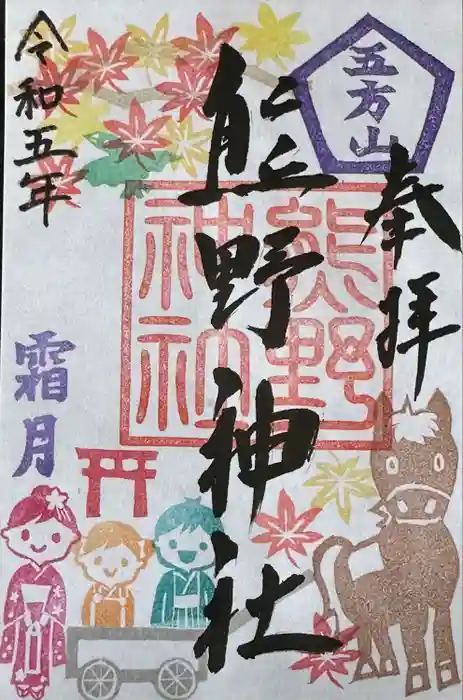 奉拝
五方山
熊野神社
熊野
神社
令和五年
霜月